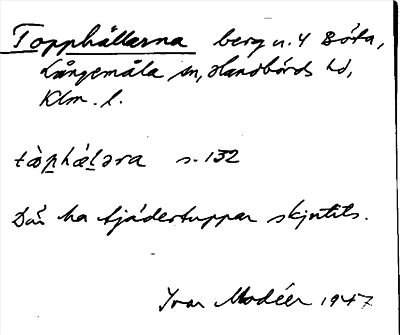 Topphällarna berg u. 4 Bôta,
Långemåla sn, Handbörds hd,
Klm. l.
tòp̠hæ̀l̠əra s. 132
Där ha tjädertuppar skjutits.
Ivar Modéer 1947